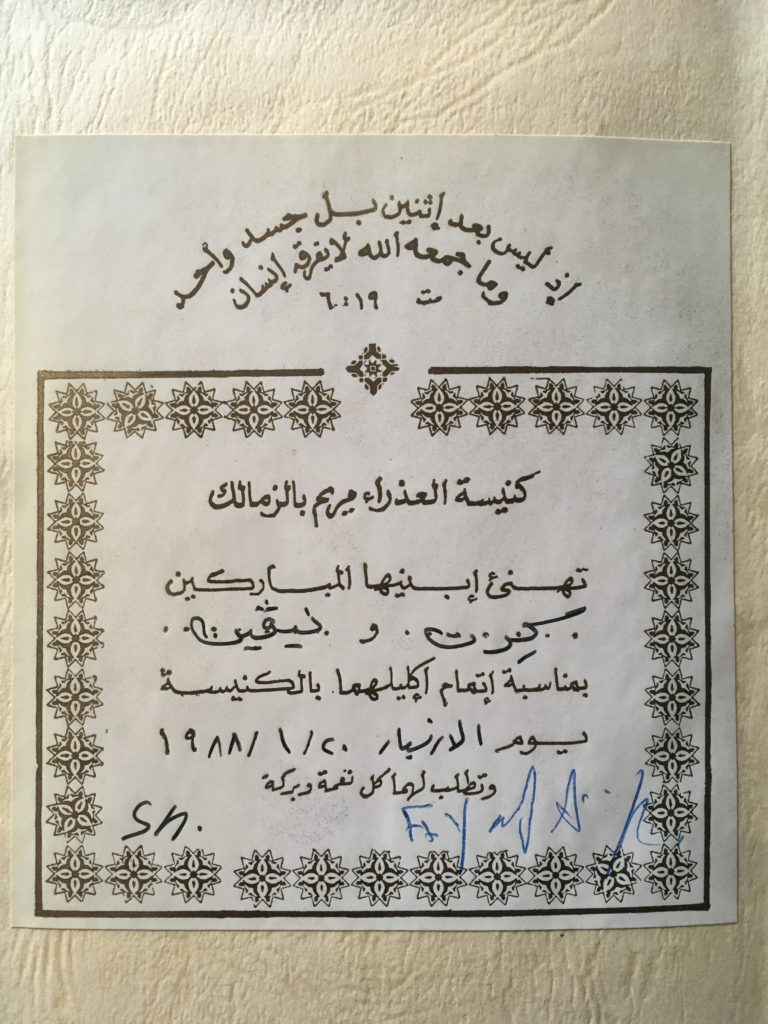 إذ ليس بعد إثنين بل جسد واحد
وما جمعه الله لا يفرقه إنسان
مت ٦:١٩
كنيسة العذراء مريم بالزمالك
تهنئ إبنيها المباركين
كرت و نيڤين
بمناسبة إتمام إكليلهما بالكنيسة
يوم الاربعاء ١٩٨٨/١/٢٠
وتطلب لهما كل نعمة وبركة